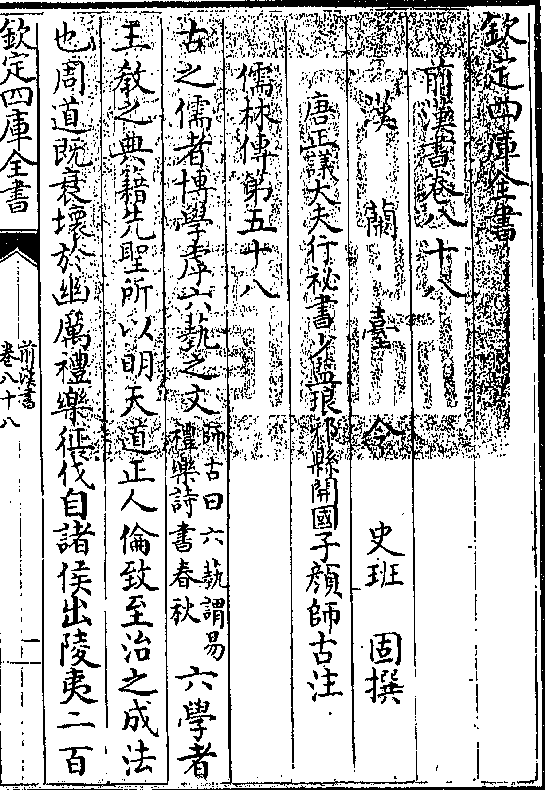 欽定四庫全書
前漢書卷八十八
漢蘭臺令史班固撰
唐正議大夫行祕書少監琅邪縣開國子顏師古注
儒林傳第五十八
古之儒者博學虖六藝之文師古曰六藝謂易禮樂詩書春秋六學者
王教之典籍先聖所以明天道正人倫致至治之成法
也周道既衰壞於幽厲禮樂征伐自諸侯出陵夷二百
欽定四庫全書
前漢書
卷八十八
一